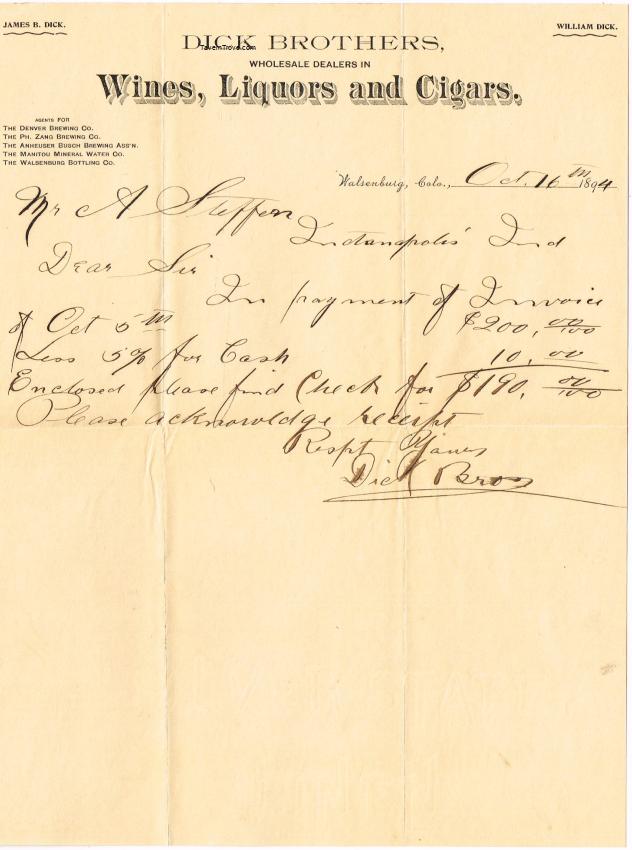 JAMES B. DICK.
WILLIAM DICK.
DICK BROTHERS,
TavernTrove.com
WHOLESALE DEALERS IN
Wines, Liquors and Cigars.
AGENTS FOR
THE DENVER BREWING CO.
THE PH. ZANG BREWING CO.
THE ANHEUSER BUSCH BREWING ASS'N.
THE MANITOU MINERAL WATER CO.
THE WALSENBURG BOTTLING CO.
Walsenburg, Colo., Oct. 16th 1894
Mr A Steffen
Indianapolis Ind
Dear Sir
In payment of Invoice
of Oct 5th $200, 00/100
Less 5% for Cash 10, 00
Enclosed please find Check for $190, 00/100
Please acknowldge receipt
Respt Yours
Dick Bros